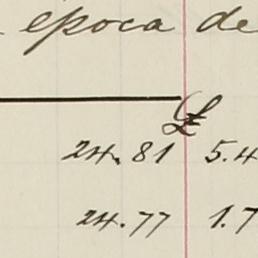 época de
£
24.81 5.4
24.77 1.7